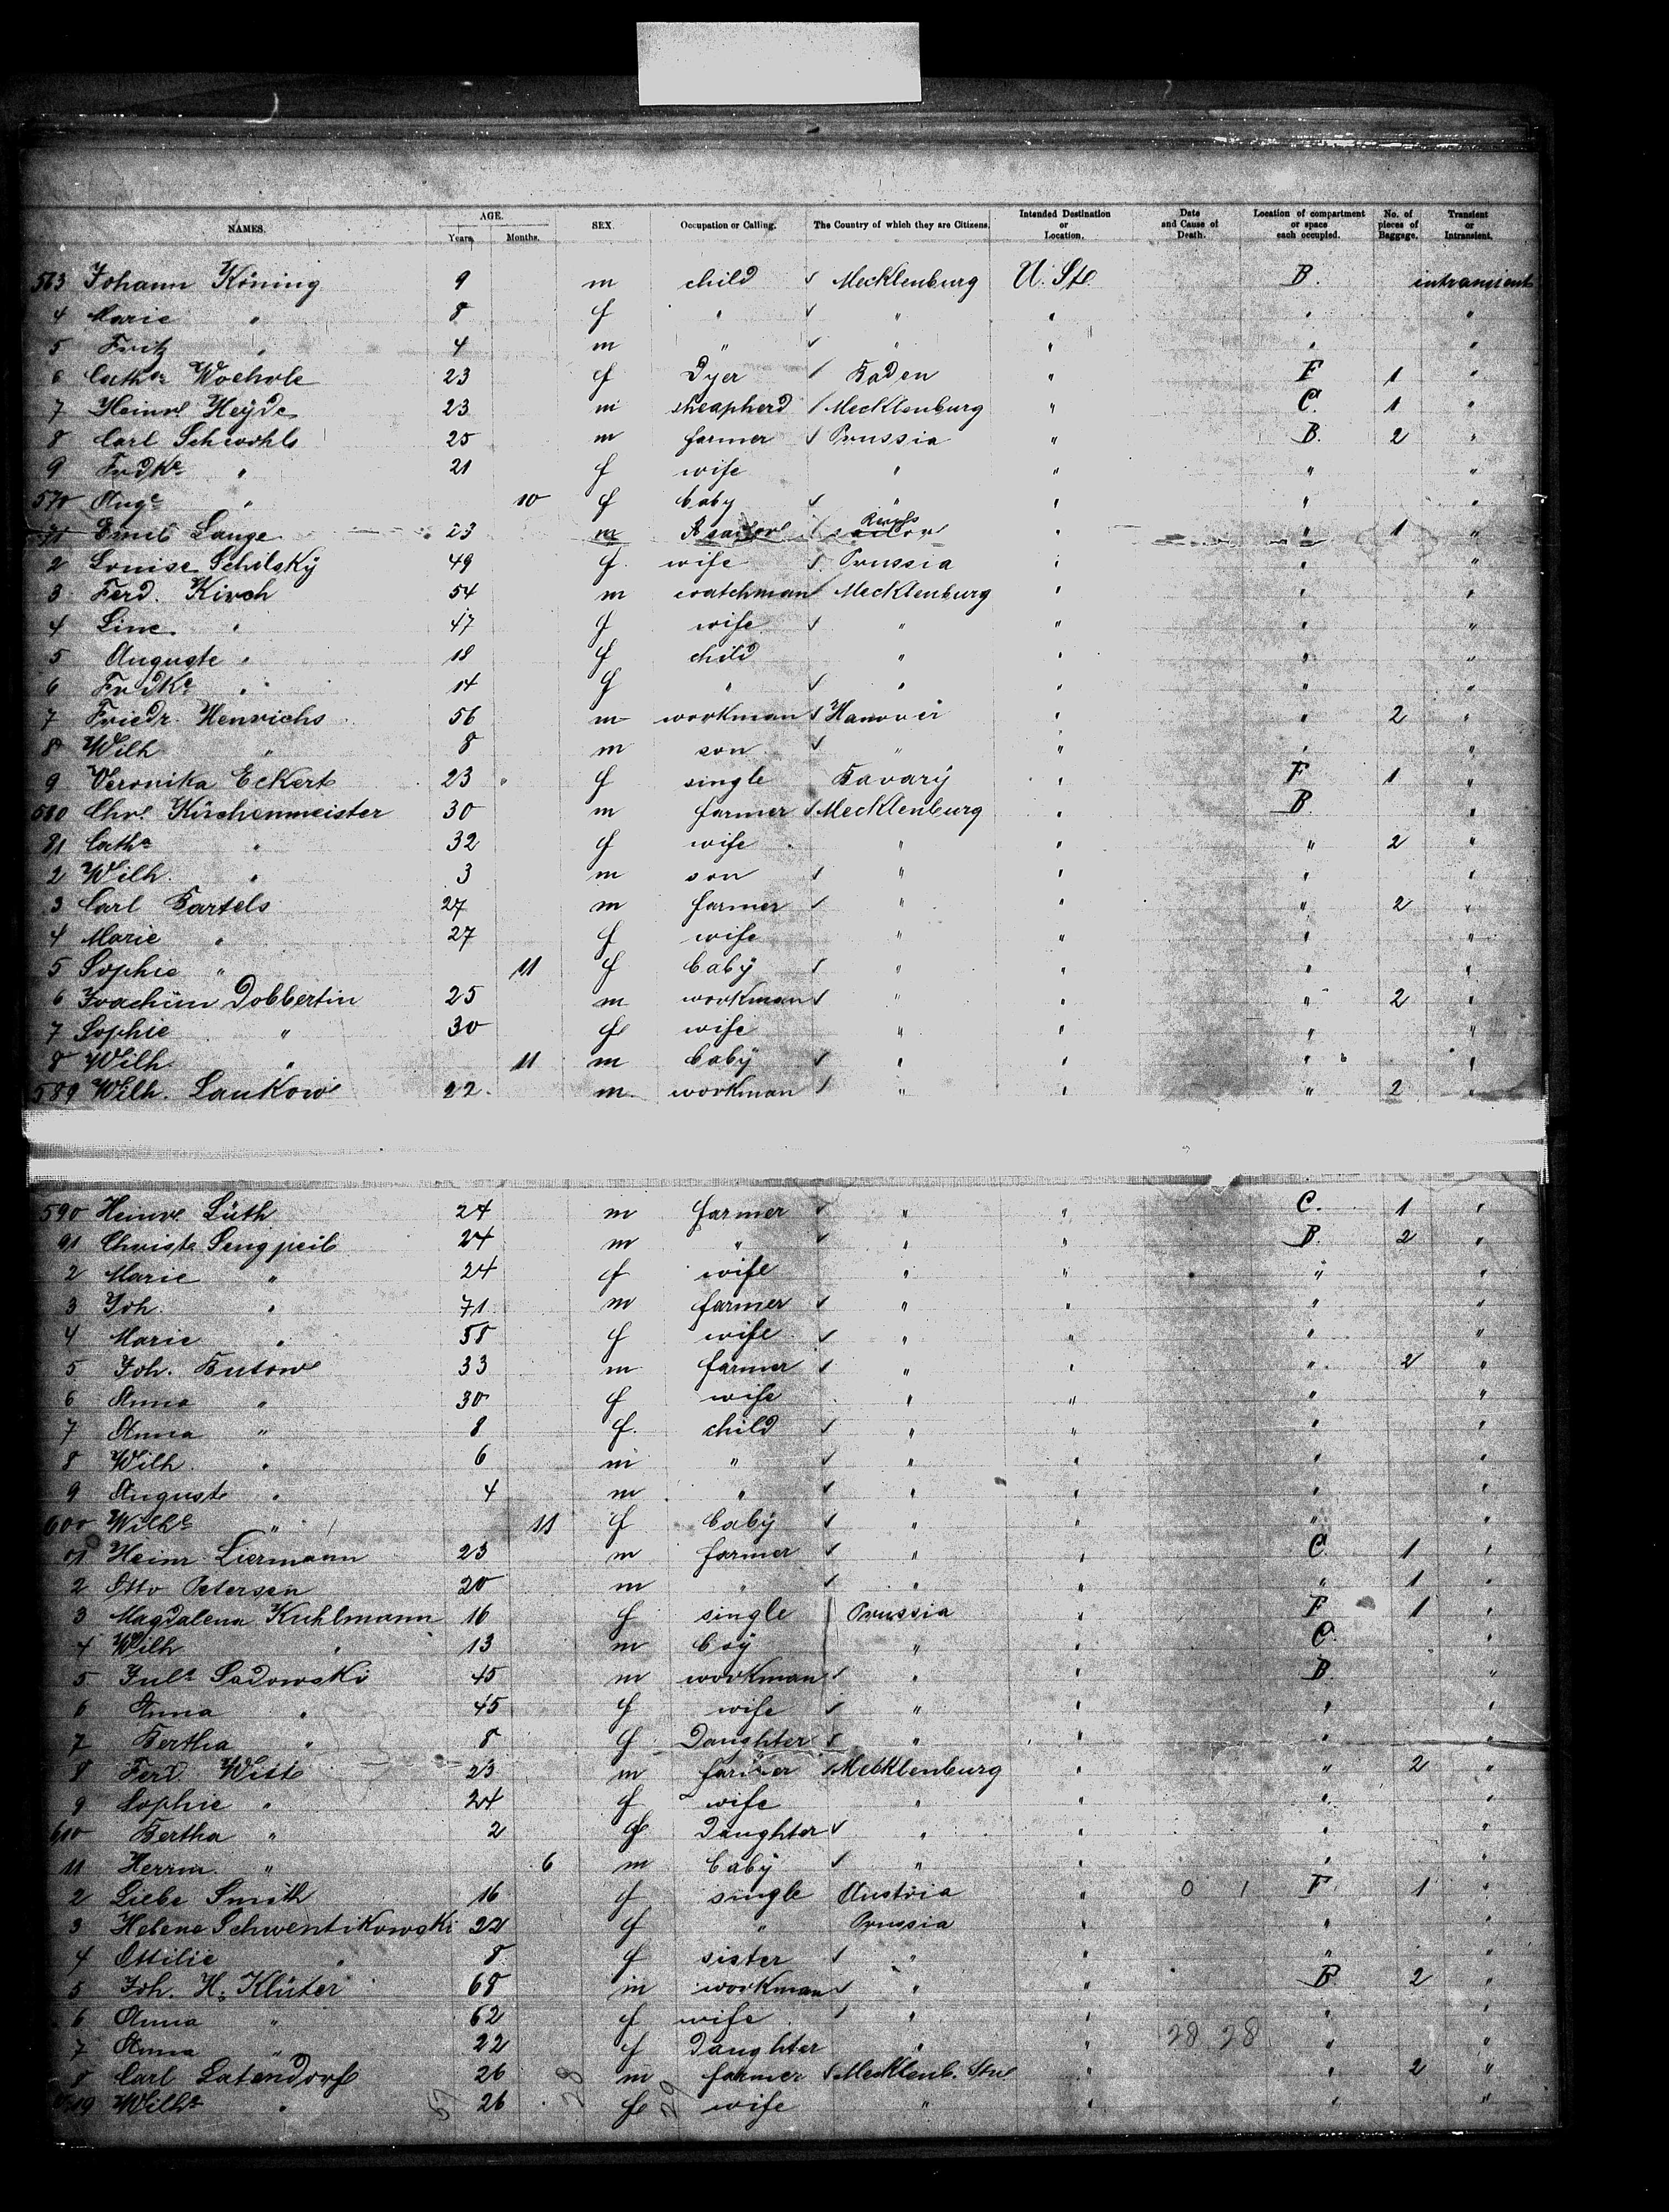 NAMES. AGE. Years. Months. SEX. Occupation or Calling. The Country of which they are Citizens. Intended Destination or Location. Date and Cause of Death. Location of compartment or space each occupied. No. of pieces of Baggage. Transient or Intransient.
563 Johann Köning 9 m child ✓ Mecklenburg U. St. B. intransient
4 Marie " 8 f " ✓ " " " "
5 Fritz " 4 m " ✓ " " " "
6 Cath. Woehrle 23 f Dyer / Baden " F 1 "
7 Heinr Heyde 23 m sheapherd / Mecklenburg " C. 1 "
8 Carl 25 m farmer ✓ Prussia " B. 2 "
9 Fr dke " 21 f wife " " " "
570 Auge " 10 f baby ✓ " " " "
71 Emil Lange 23 m " " 1 "
2 Louise Schilsky 49 f. wife ✓ Prussia " " "
3 Ferd. Kirch 54 m watchman / Mecklenburg " " "
4 Line " 47 f wife ✓ " " " "
5 Auguste " 18 f child " " " "
6 Fr dke " 14 f " ✓ " " " "
7 Friedr. Henrichs 56 m workman ✓ Hanover " " 2 "
8 Wilh " 8 m son ✓ " " " "
9 Veronika Eckert 23 f single Bavary " F 1 "
580 Chr. Kirchenmeister 30 m farmer ✓ Mecklenburg " B. "
81 Catha " 32 f wife " " " 2 "
2 Wilh. " 3 m son ✓ " " " "
3 Carl Bartels 27 m farmer ✓ " " " 2 "
4 Marie " 27 f wife " " " "
5 Sophie " 11 f baby ✓ " " " "
6 Joachim Dobbertin 25 m workman ✓ " " " 2 "
7 Sophie " 30 f wife " " " "
8 Wilh. " 11 m baby ✓ " " " "
589 Wilh. Laukow 22. m. workman ✓ " " " 2 "
590 Heinr. Lüth 24 m farmer ✓ " " C. 1 "
91 Christ. Sengpeil 24 m " ✓ " " B. 2 "
2 Marie " 24 f wife " " " "
3 Joh. " 71 m farmer ✓ " " " "
4 Marie " 58 f wife ✓ " " " "
5 Joh. Butow 33 m farmer ✓ " " " 2 "
6 Anna " 30 f wife " " " "
7 Anna " 8 f. child ✓ " " " "
8 Wilh. " 6 m " ✓ " " " "
9 August " 4 m " ✓ " " " "
600 Wilhe " 11 f baby ✓ " " " "
01 Heinr. Liermann 23 m farmer ✓ " " C. 1 "
2 Otto Petersen 20 m " ✓ " " " 1 "
3 Magdalena Kuhlmann 16 f single Prussia " F 1 "
4 Wilh " 13 m boy " " C. "
5 Jul. Sadowski 45 m workman ✓ " " B. "
6 Anna " 45 f wife ✓ " " " "
7 Bertha " 8 f Daughter ✓ " " " "
8 Ferd. Witt 23 m farmer ✓ Mecklenburg " " 2 "
9 Sophie " 24 f wife " " " "
610 Bertha " 2 f Daughter ✓ " " " "
11 Herrm. " 6 m baby ✓ " " " "
2 Liebe Smith 16 f single Austria " 0 1 F 1 "
3 Helene Schwentikowski 22 f " Prussia " " "
4 Ottilie " 8 f sister ✓ " " " "
5 Joh. H. Klüter 68 m workman ✓ " " B 2 "
6 Anna " 62 f wife ✓ " " " "
7 Anna " 22 f Daughter " " 28 28 " "
8 Carl Latendorf 26 m farmer ✓ Mecklenb. " " 2 "
619 Wilhe " 26 f wife " " " "
28 29